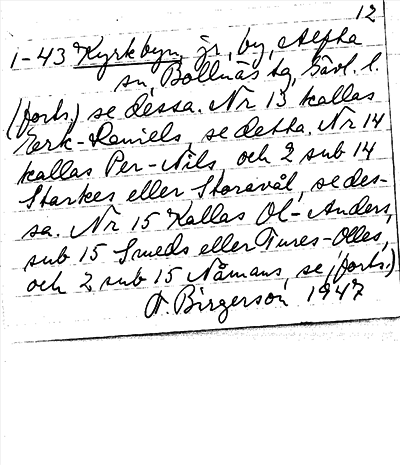 12
1-43 Kyrkbyn, jr, by, Alfta
sn, Bollnäs tg, Gävl. l.
(forts.) se dessa. Nr 13 kallas
Erk-Daniels, se detta. Nr 14
kallas Per-Nils, och 2 sub 14
Starkes eller Storavål, se des-
sa. Nr 15 Kallas Ol-Anders,
sub 15 Smeds eller Tures-Olles,
och 2 sub 15 Nåmans, se (forts.)
F. Birgerson 1947